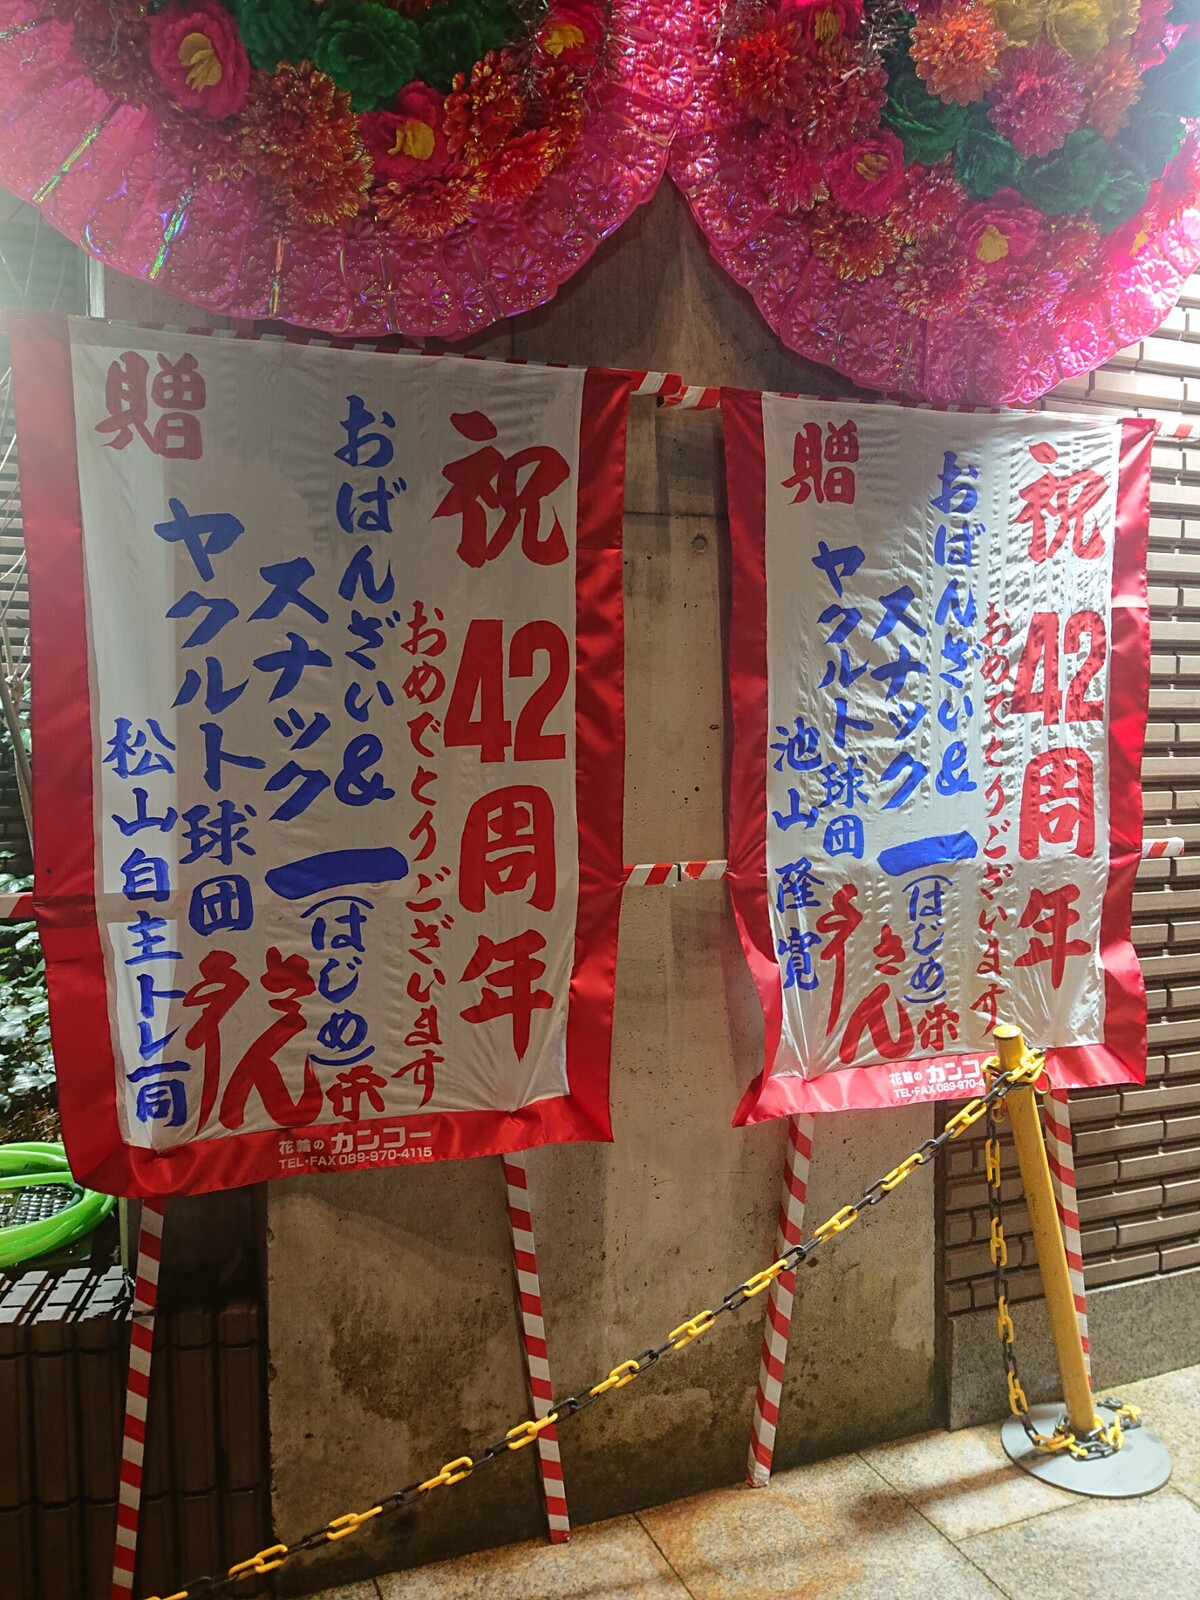 祝 42周年
おめでとうございます
おばんざい&
スナック
一(はじめ)
さん江
ヤクルト球団
松山自主トレ一同
贈
花輪の カンコー
TEL・FAX 089-970-4115
祝 42周年
おめでとうございます
おばんざい&
スナック
一(はじめ)
さん江
ヤクルト球団
池山隆寛
贈
花輪の カンコ
TEL・FAX 089-970-4